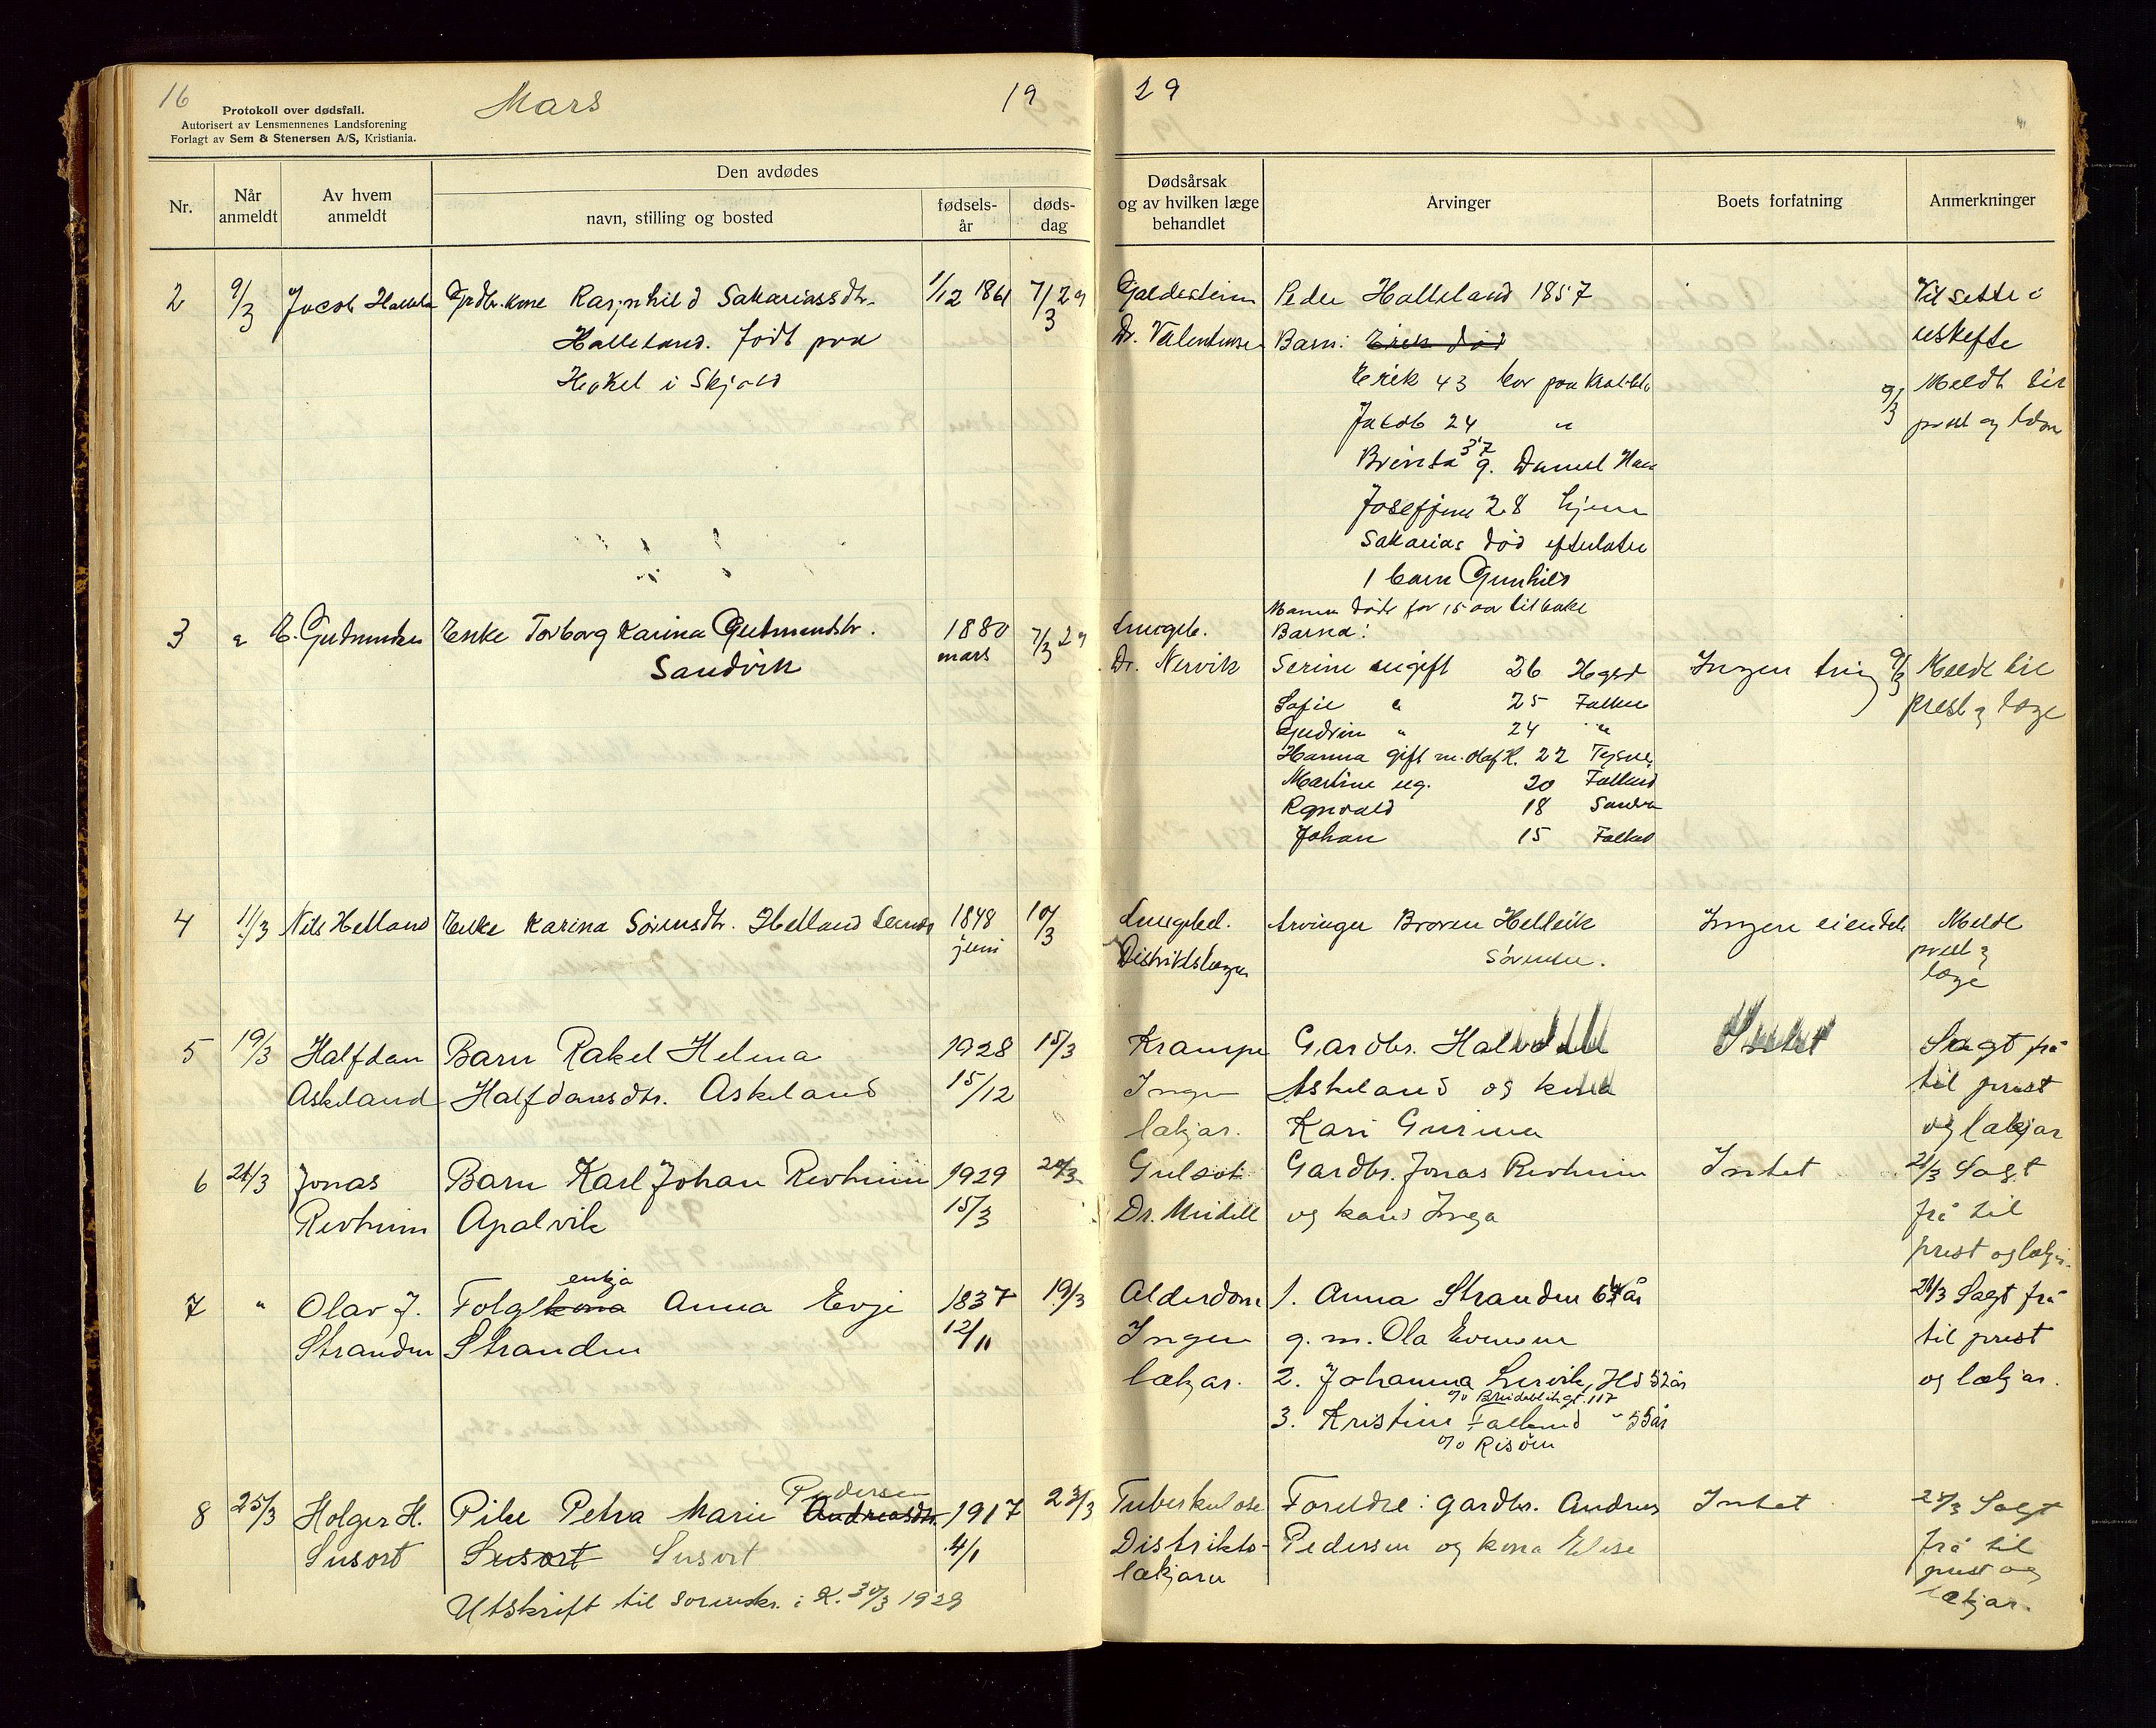 16
Protokoll over dødsfall.
Autorisert av Lensmennenes Landsforening
Forlagt av Sem & Stenersen A/S, Kristiania.
Mars
19 29
Nr.
Når anmeldt
Av hvem anmeldt
Den avdødes
navn, stilling og bosted
fødsels-år
døds-dag
Dødsårsak og av hvilken læge behandlet
Arvinger
Boets forfatning
Anmerkninger
2 9/3 Jacob Grdbr. kone Ragnhild Sakariasdtr. 1/12 1861 7/3 29
Halleland. født paa
i Skjold
Galdestein
Dr. Valentinsen
Peder Halleland 1857
Barn: Erik død
Erik 43 bor paa
Jakob 24 "
37
g. Daniel
Josefine 28 hjeme
Sakarias død efterlater
1 barn Gunhild
Vil sitte i
uskifte
9/3 Meldt til
prest og
3 " E. Gudmundsen Enke Torborg Karina Gudmundsdtr. 1880 7/3 29
Sandvik mars
Lungeb.
Dr. Nervik
Manen døde for 15 aar tilbake
Barna:
Serine ugift 26 Hgsd
Sofie " 25
Gudrun " 24 "
Hanna gift m. Olaf H. 22
Martine ug. 20
Ragnvald 18
Johan 15
Ingen ting
9/3 Meldt til
prest og læge
4 11/3 Nils Helland Enke Karina Sørensdtr. Helland 1848 10/3
juni
Lungebet.
Distriktslægen
Arvinger Broren Helleik
Sørensen.
Ingen eiendele
Meldt
prest og
læge
5 19/3 Halfdan Barn Rakel Helena 1928 15/3
Askeland Halfdansdtr. Askeland 15/12
Krampe
Ingen
lækjar.
Gardbr.
Askeland og kona
Kari Gurina
Intet
Sagt frå
til prest
og lækjar
6 21/3 Jonas Barn Karl Johan Revheim 1929 20/3
Revheim Apalvik 15/3
Gulsot
Dr. Meidell
Gardbr. Jonas Revheim
og kona Inga
Intet
21/3 Sagt
frå til
prest og lækjar.
7 " Olav J. Folgkona enkja Anna Evje 1837 19/3
Stranden Stranden 12/11
Alderdom
Ingen
lækjar.
1. Anna Stranden 64 år
g. m. Ola Evensen
2. Johanna Lervik, Hd 52 år
c/o 117
3. Kristine " 55 år
c/o Risøen
21/3 Sagt frå
til prest
og lækjar.
8 25/3 Holger H. Pike Petra Marie Andreasdtr. Pedersen 1917 23/3
Susort Susort Susort 4/1
Tuberkulose
Distrikts-
lækjaren
Foreldre: gardbr. Andreas
Pedersen og kona Elise
Intet
Sagt
frå til
prest og
lækjar.
Utskrift til sorenskr. i K. 30/3 1929